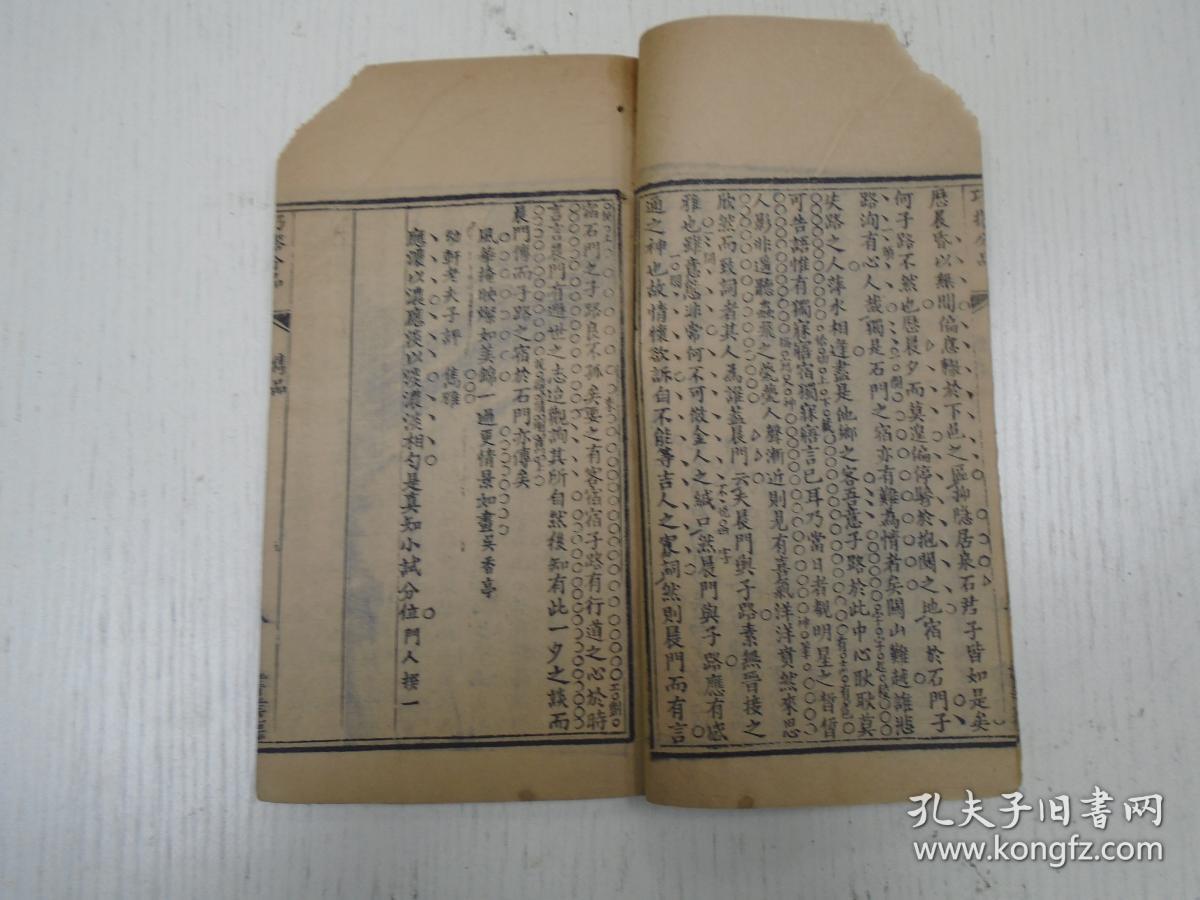 歷晨昏以無間偏應襟於下邑之區抑隐居泉石君子皆如是矣
何子路不然也歷晨夕而莫遑偏停驂於抱關之地宿於石門子
路洵有心人哉獨是石門之宿亦有難為情者矣關山難越誰悲
失路之人萍水相逢盡是他鄉之客吾意子路於此中心耿耿莫
可告語惟有獨寐寤宿獨寐寤言已耳乃當日者覩明星之晢晢
人影非遥聽蟲飛之薨薨人聲漸近則見有喜氣洋洋賁然來思
欣然而致詞者其人為誰葢晨門云夫晨門與子路素無晉接之
雅也雖意態非常何不可微金人之緘口然晨門與子路應有感
通之神也故情懷欲訴自不能等吉人之寡詞然則晨門而有言
宿石門之子路良不孤矣要之有客宿宿子路有行道之心於時
言言晨門有遯世之志迨觀詢其所自然後知有此一夕之談而
晨門傳而子路之宿於石門亦傳矣
風華掩映燦如美錦一過更情景如畫吳香亭
幼軒老夫子評 雋雅
應濃以濃應淡以淡濃淡相勻是真知小試分位門人 一
雋品
孔夫子旧书网
www.kongfz.com